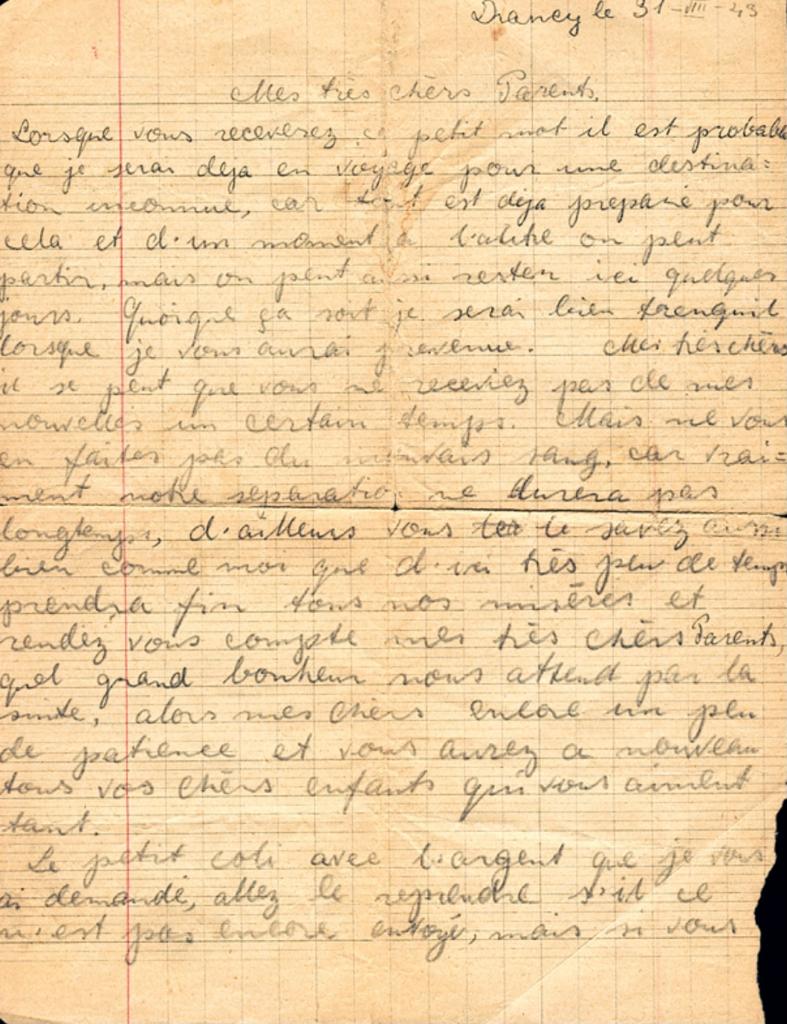 Drancy le 31-VIII-43
Mes très chèrs Parents,
Lorsque vous receverez ce petit mot il est probable
que je serai deja en voyage pour une destina=
tion inconnue, car tout est deja preparé pour
cela et d'un moment a l'autre on peut
partir, mais on peut aussi rester ici quelques
jours. Quoique ça soit je serai bien trenquil
lorsque je vous aurai prevenue. Mes très chèrs
il se peut que vous ne receviez pas de mes
nouvelles un certain temps. Mais ne vous
en faites pas du mauvais sang, car vrai=
ment notre separatio ne durera pas
longtemps, d'ailleurs vous le savez aussi
bien comme moi que d'ici très peu de temps
prendra fin tous nos misères et
rendez vous compte mes très chèrs Parents,
quel grand bonheur nous attend par la
suite, alors mes chèrs encore un peu
de patience et vous aurez a nouveau
tous vos chèrs enfants qui vous aiment
tant.
Le petit coli avec l'argent que je vous
ai demandé, allez le reprendre s'il ce
n'est pas encore envoyé, mais si vous